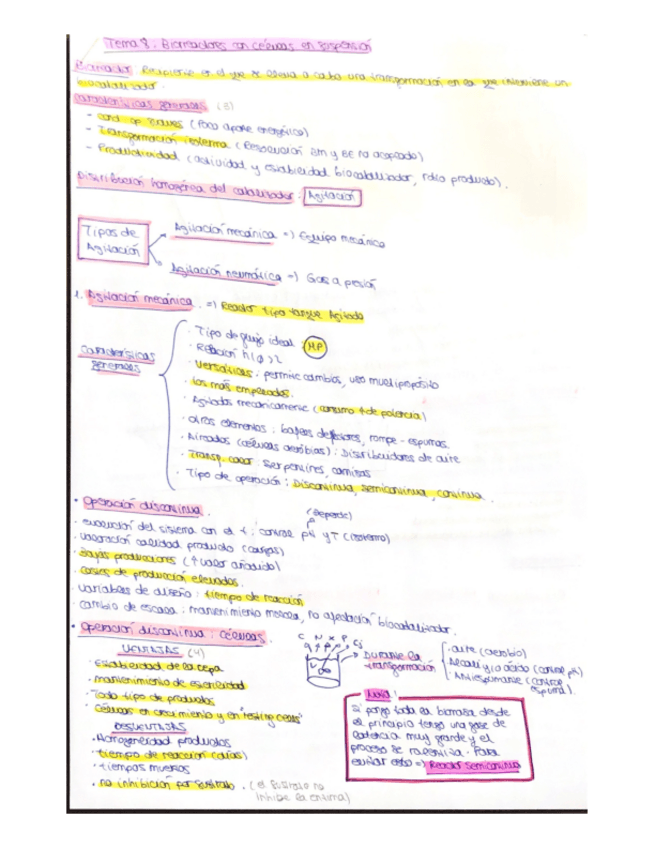 Tema 8. Biorreactores con células en suspensión
Biorreactor: Recipiente en el que se lleva a cabo una transformación en la que interviene un
biocatalizador.
Características generales (3)
- cond. op. suaves (Poco aporte energético)
- Transformación isoterma (Resolución BM y BE no acoplado)
- Productividad (actividad y estabilidad biocatalizador, rdto producto).
Distribución homogénea del catalizador: Agitación
Tipos de Agitación
Agitación mecánica => Equipo mecánico
Agitación neumática => Gas a presión
1. Agitación mecánica. => Reactor tipo tanque Agitado
Características generales
· Tipo de flujo ideal: M.P
· Relación h/φ > 2
· Versátiles: permite cambios, uso multipropósito
· los más empleados.
· Agitados mecánicamente (consumo ↑ de potencia)
· otros elementos: bafles deflectores, rompe-espumas.
· Aireados (células aerobias): Distribuidores de aire
· Transp. calor: serpentines, camisas
· Tipo de operación: Discontinua, semicontinua, continua.
• Operación discontinua.
(depende)
· evolución del sistema con el t: control pH y T (isotermo)
· valoración calidad producto (cargas)
· Bajas producciones (↑ valor añadido)
· costes de producción elevados.
· variables de diseño: tiempo de reacción
· cambio de escala: mantenimiento mezcla, no afectación biocatalizador.
• Operación discontinua: células.
VENTAJAS (4)
· Estabilidad de la cepa
· mantenimiento de esterilidad
· Todo tipo de productos
· Células en crecimiento y en "resting cells"
DESVENTAJAS
· Homogeneidad productos
· tiempo de reacción (días)
· tiempos muertos
· no inhibición por sustrato. (el sustrato no
inhibe la enzima)
C N X P
V
Durante la transformación
· aire (aerobio)
· Alcali y/o ácido (control pH)
· Antiespumante (control espuma).
Nota!
Si pongo toda la biomasa desde
el principio tengo una fase de
latencia muy grande y el
proceso se ralentiza. Para
evitar esto => Reactor Semicontinuo